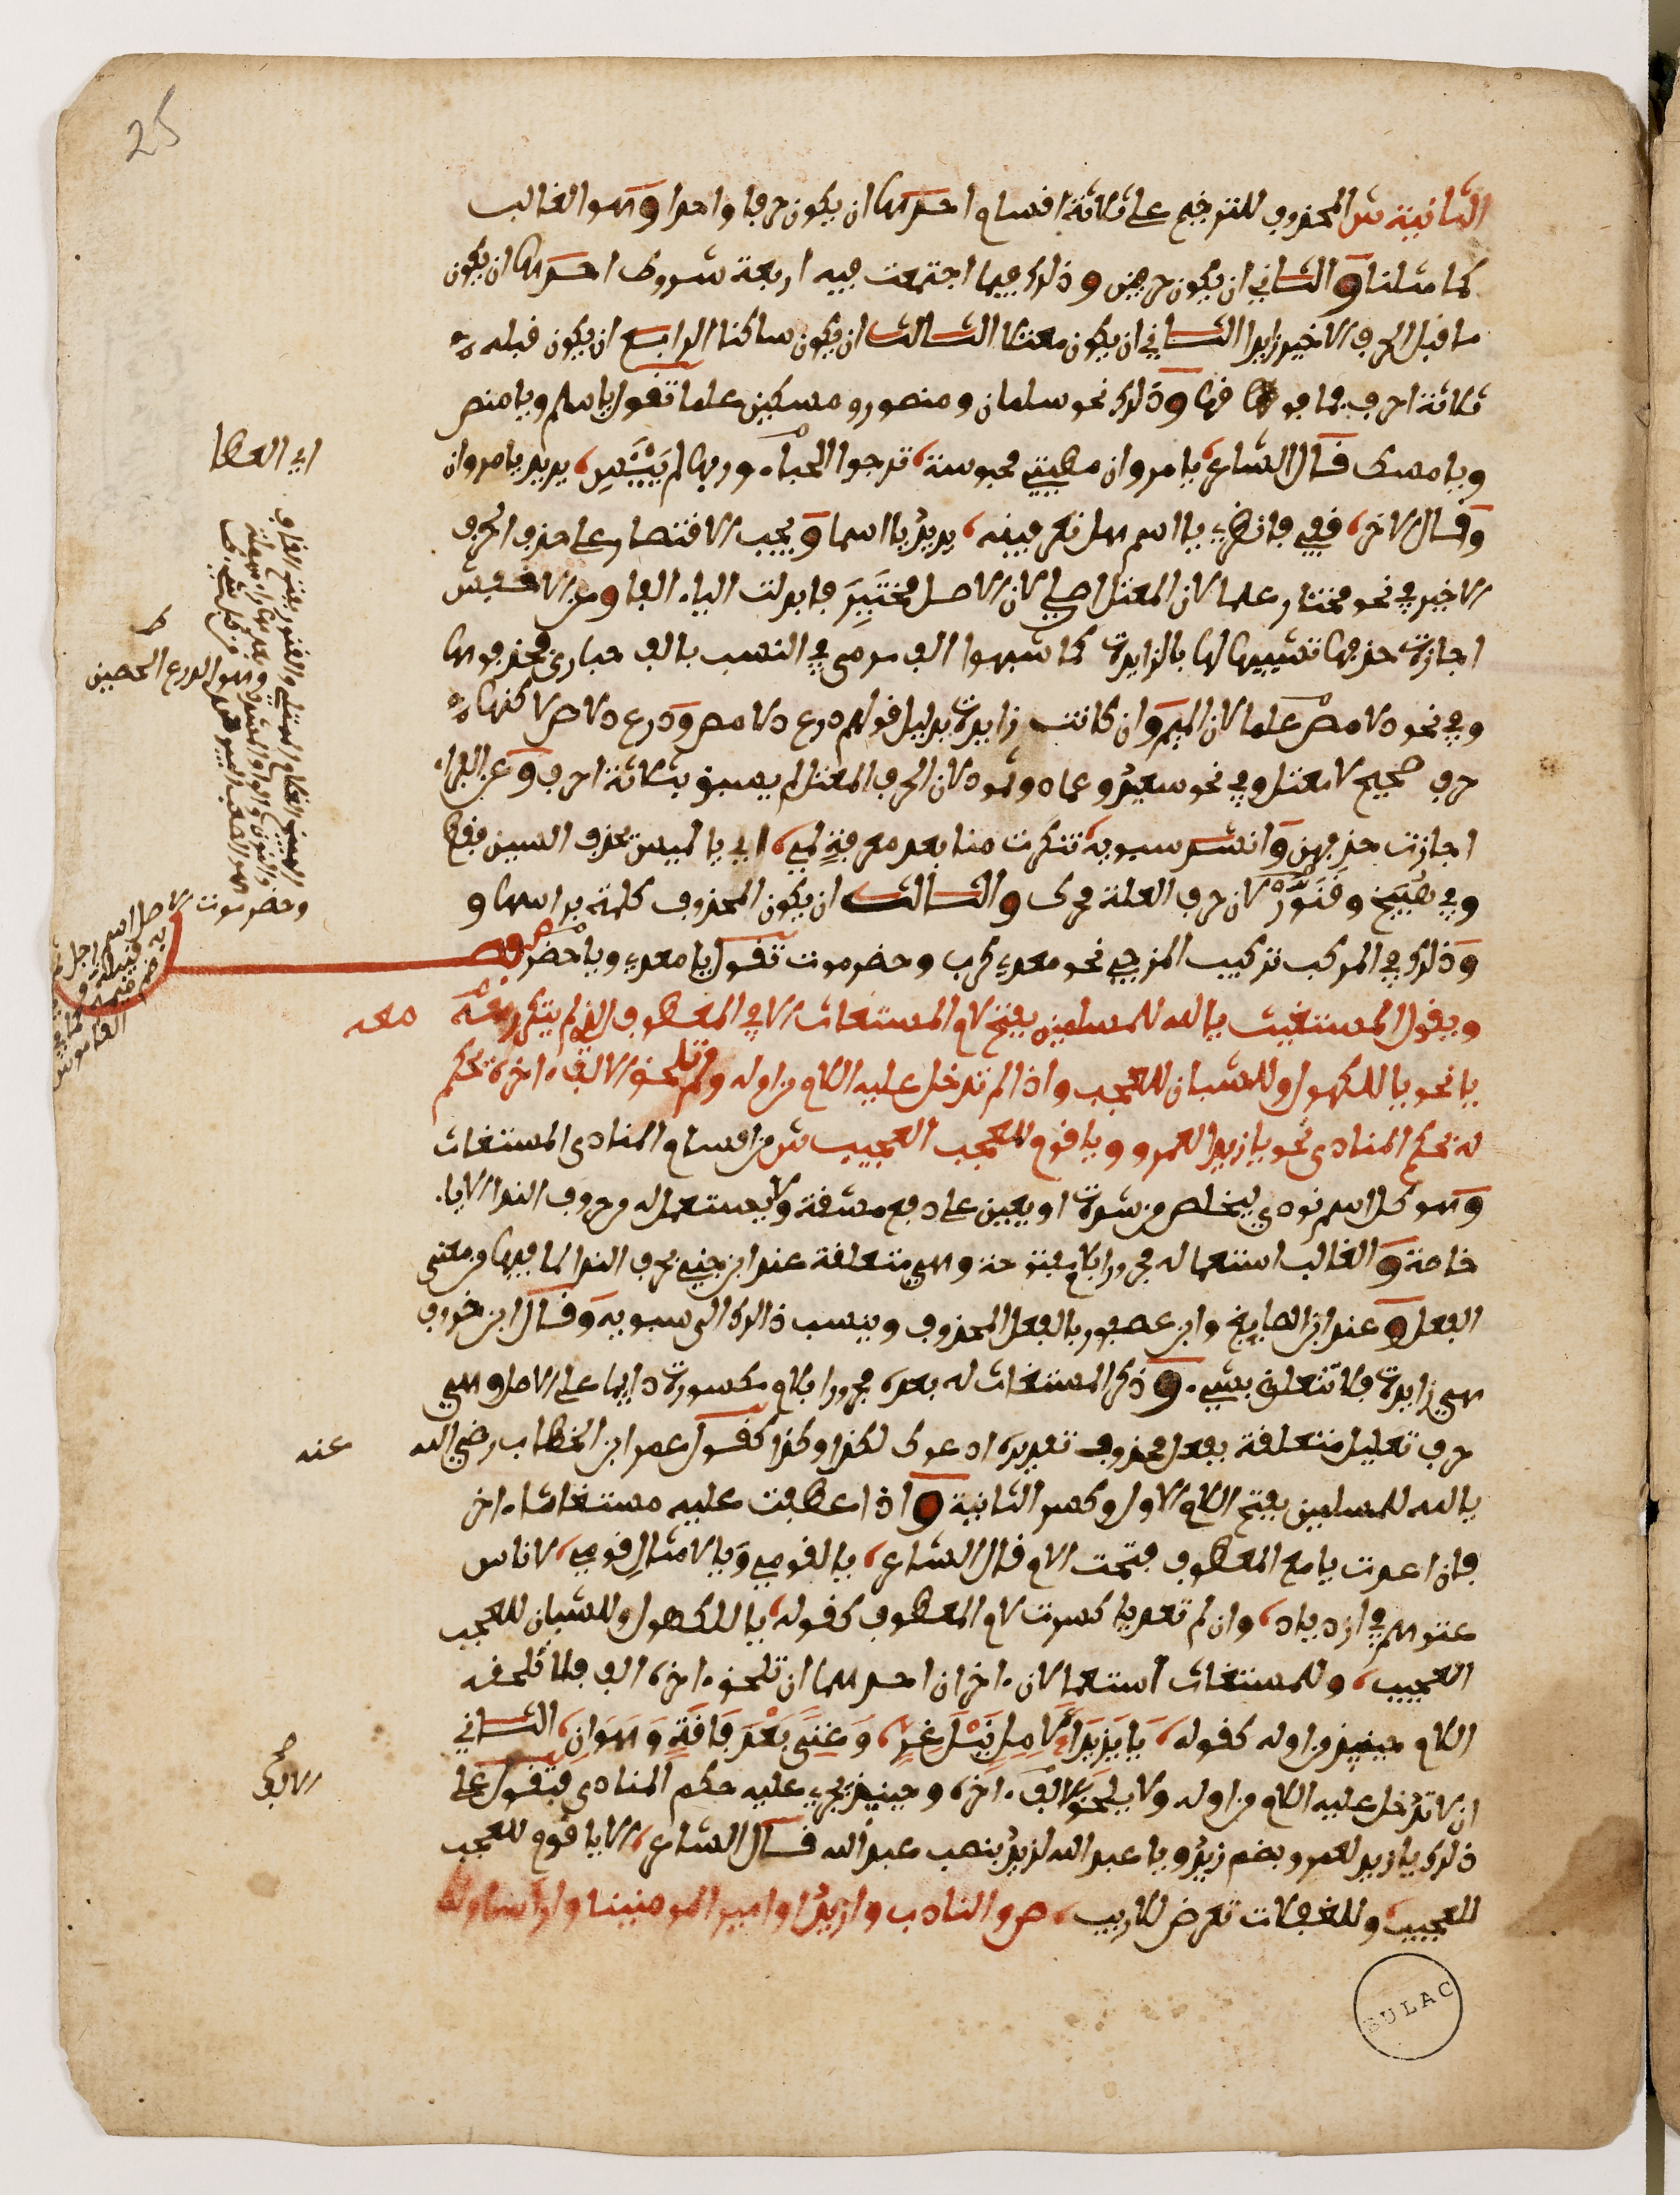 25
الثانية ش المحذوف للترخيم على ثلاثة اقسام احدها ان يكون حرفا واحدا وهو الغالب
كما مثلنا والثاني ان يكون حرفين وذلك فيما اجتمعت فيه اربعة شروط احدها ان يكون
ما قبل الحرف الاخير زايدا الثاني ان يكون معتلا الثالث ان يكون ساكنا الرابع ان يكون قبله
ثلاثة احرف فما فوقها وذلك نحو سلمان ومنصور ومسكين علما تقول يا سلم ويا منص
ويا مسك قال الشاعر يا مرو ان مطيتي محبوسة ترجوا الحباء وربها لم ييئس يريد يا مروان
اي العطا
وقال الاخر قفي فانظري يا اسم هل تعرفينه يريد يا اسما ويجب الاقتصار على حذف الحرف
الاخير في نحو مختار علما لان المعتل اصلي لان الاصل مختير فابدلت الياء الفا وعن الاخفش
اجازة حذفها تشبيها لها بالزايدة كما شبهوا الف مرمى في النسب بالف حبارى فحذفوها
وفي نحو دلامص علما لان الميم وان كانت زايدة بدليل قولهم درع دلامص ودرع دلاص لاكنها
وهو الدرع الحصين
حرف صحيح لا معتل وفي نحو سعيد وعماد وثمود لان الحرف المعتل لم يسبق بثلاثة احرف وعن الفراء
اجازت حذفهن وانشد سيبويه تنكرت منا بعد معرفة لمي اي يا لميس فحذف السين فقط
وفي هبيخ وقنور لان حرف العلة محرك والثالث ان يكون المحذوف كلمة براسها و
وذلك في المركب تركيب المزجي نحو معدي كرب وحضرموت تقول يا معدي ويا حضر فصل
وحضرموت الاصل اسم رجل
القاموس
ويقول المستغيث يا لله للمسلمين بفتح لام المستغاث الا في المعطوف الذي لم يتكرر معه
معه
يا نحو يا للكهول وللشبان للعجب واذا لم تدخل عليه اللام من اوله ولم تلحقه الالف اخره تحكم
له بحكم المنادى نحو يا زيد العمرو ويا قوم للعجب العجيب ش من اقسام المنادى المستغاث
وهو كل اسم نودي ليخلص من شدة او يعين على دفع مشقة ولا يستعمل له من حروف الندا الا يا
خاصة والغالب استعماله مجرورا بلام مفتوحة وهي متعلقة عند ابن جني بحرف الندا لما فيها من معنى
الفعل وعند ابن الصايغ وابن عصفور بالفعل المحذوف وينسب ذالك الى سيبويه وقال ابن خروف
هي زايدة فلا تتعلق بشيء وذكر المستغاث له بعده مجرورا بلام مكسورة دايما على الاصل وهي
حرف تعليل متعلقة بفعل محذوف تقديره ادعوك لكذا وكذا كقول عمر ابن الخطاب رضي الله
عنه
يا لله للمسلمين بفتح اللام الاول وكسر الثانية واذا عطفت عليه مستغاثا اخر
فان اعدت يا مع المعطوف فتحت اللام قال الشاعر يا لقومي ويا لامثال قومي لاناس
عتوهم في ازدياد وان لم تعد يا كسرت لام المعطوف كقوله يا للكهول وللشبان للعجب
العجيب وللمستغاث استعمالان اخران احدهما ان تلحق اخره الف فلا تلحقه
اللام حينيذ من اوله كقوله يا يزيدا لامل نيل عز وغنى بعد فاقة وهوان الثاني
ان لا تدخل عليه اللام من اوله ولا يلحقه الالف اخره وحينيذ يجري عليه حكم المنادى فتقول على
الالف
ذلك يا زيد لعمرو بضم زيد ويا عبد الله لزيد بنصب عبد الله قال الشاعر الا يا قوم للعجب
للعجيب وللغفلات تعرض للاريب ص والنادب وازيدا وامير المومنينا واراسا ولك
BULAC